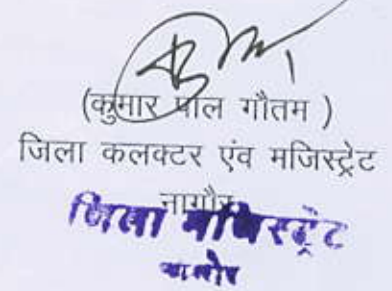 (कुमार पाल गौतम )
जिला कलक्टर एंव मजिस्ट्रेट
नागौर
जिला मजिस्ट्रेट